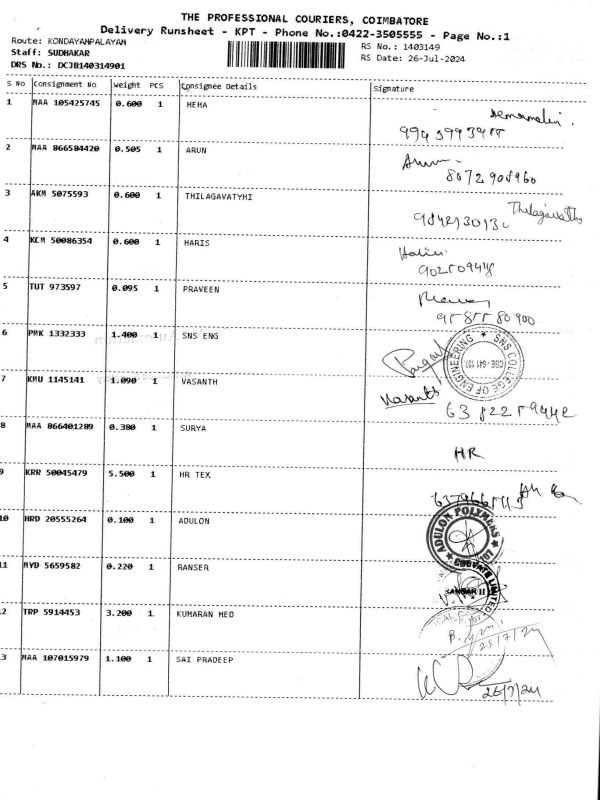 THE PROFESSIONAL COURIERS, COIMBATORE
Delivery Runsheet - KPT - Phone No.:0422-3505555 - Page No.:1
Route: KONDAYAMPALAYAM
Staff: SUDHAKAR
DRS No.: DCJB140314901
RS No.: 1403149
RS Date: 26-Jul-2024
S No Consignment No Weight PCS Consignee Details Signature
1 MAA 105425745 0.600 1 HEMA
2 MAA 866584420 0.505 1 ARUN
8072908960
3 AKM 5075593 0.600 1 THILAGAVATYHI Thilagavathy
4 KCM 50086354 0.600 1 HARIS
5 TUT 973597 0.095 1 PRAVEEN
6 PMK 1332333 1.400 1 SNS ENG
SNS COLLEGE OF ENGINEERING
CBE-641 107
7 KMU 1145141 1.090 1 VASANTH Vasanth
8 MAA 866401289 0.380 1 SURYA
HR
9 KRR 50045479 5.500 1 HR TEX
10 HRD 20555264 0.100 1 ADULON
ADULON POLYMERS PRIVATE LIMITED
11 MYD 5659582 0.220 1 RANSER
12 TRP 5914453 3.200 1 KUMARAN MED
13 MAA 107015979 1.100 1 SAI PRADEEP
26/7/24